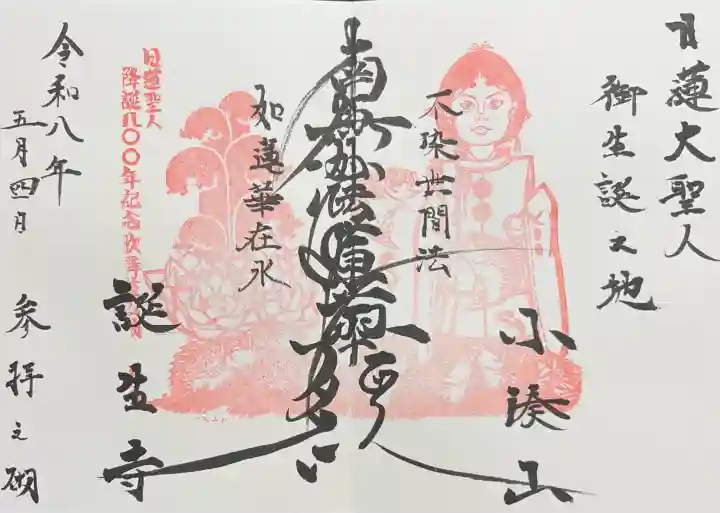 日蓮大聖人
御生誕之地
小湊山
不染世間法
南無妙法蓮華経
如蓮華在水
誕生寺
日蓮聖人
降誕八〇〇年記念
令和八年
五月四日
参拝之砌